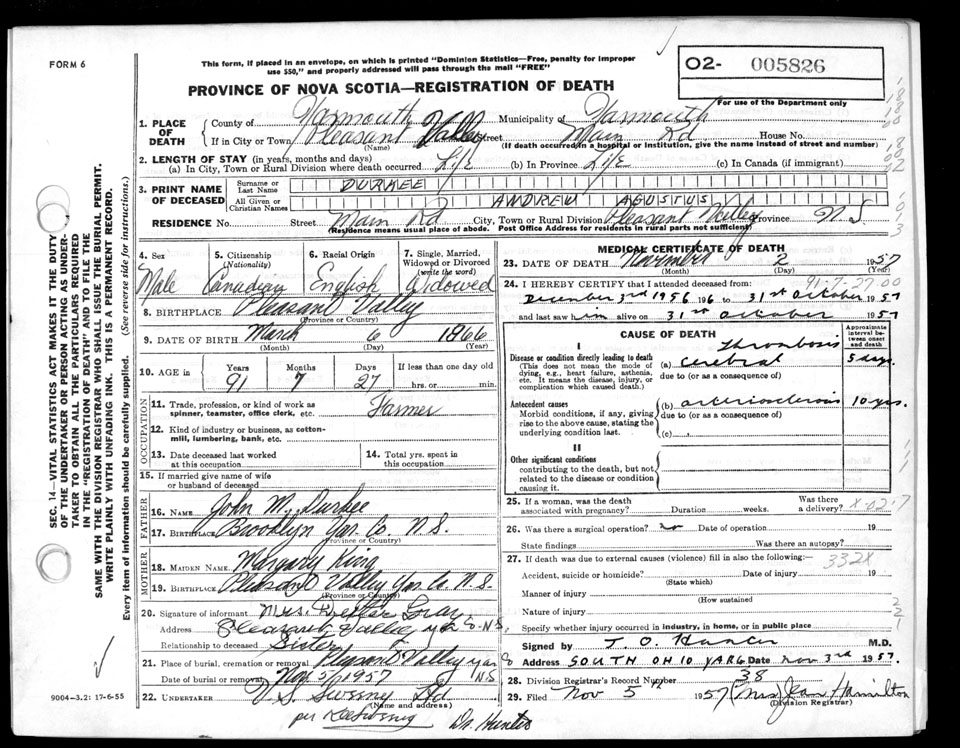 FORM 6
This form, if placed in an envelope, on which is printed "Dominion Statistics—Free, penalty for improper
use $50," and properly addressed will pass through the mail "FREE"
PROVINCE OF NOVA SCOTIA—REGISTRATION OF DEATH
O2- 005826
For use of the Department only
1. PLACE OF DEATH County of Yarmouth Municipality of Yarmouth
If in City or Town Pleasant Valley Street Main Rd House No.
(Name) (If death occurred in a hospital or institution, give the name instead of street and number)
2. LENGTH OF STAY (in years, months and days)
(a) In City, Town or Rural Division where death occurred Life (b) In Province Life (c) In Canada (if immigrant)
3. PRINT NAME OF DECEASED Surname or Last Name DURKEE
All Given or Christian Names ANDREW AGUSTUS
RESIDENCE No. Street Main Rd City, Town or Rural Division Pleasant Valley Province N.S
(Residence means usual place of abode. Post Office Address for residents in rural parts not sufficient)
4. Sex 5. Citizenship (Nationality) 6. Racial Origin 7. Single, Married, Widowed or Divorced (write the word)
Male Canadian English Widowed
8. BIRTHPLACE Pleasant Valley
(Province or Country)
9. DATE OF BIRTH March 6 1866
(Month) (Day) (Year)
10. AGE in Years Months Days If less than one day old
91 7 27 hrs. or min.
OCCUPATION
11. Trade, profession, or kind of work as spinner, teamster, office clerk, etc. Farmer
12. Kind of industry or business, as cotton-mill, lumbering, bank, etc.
13. Date deceased last worked at this occupation
14. Total yrs. spent in this occupation
15. If married give name of wife or husband of deceased
FATHER
16. NAME John M. Durkee
17. BIRTHPLACE Brooklyn Yar. Co. N.S.
(Province or Country)
MOTHER
18. MAIDEN NAME Margary King
19. BIRTHPLACE Pleasant Valley Yar. Co. N.S.
(Province or Country)
20. Signature of informant Mrs. Gray
Address Pleasant Valley N.S.
Relationship to deceased Sister
21. Place of burial, cremation or removal Pleasant Valley Yar N.S
Date of burial or removal Nov 5/1957
22. UNDERTAKER V. S. Sweeny Ltd
(Name and address)
per Sweeny
Dr. Hunter
MEDICAL CERTIFICATE OF DEATH
23. DATE OF DEATH November 2 1957
(Month) (Day) (Year)
24. I HEREBY CERTIFY that I attended deceased from: 91-7-27.00
December 3rd 1956 to 31st October 1957
and last saw him alive on 31st October 1957
CAUSE OF DEATH
Approximate interval between onset and death
I
Disease or condition directly leading to death
(This does not mean the mode of dying, e.g., heart failure, asthenia, etc. It means the disease, injury, or complication which caused death.)
(a) cerebral thrombosis 5 days.
due to (or as a consequence of)
Antecedent causes
Morbid conditions, if any, giving rise to the above cause, stating the underlying condition last.
(b) arteriosclerosis 10 yrs.
due to (or as a consequence of)
(c)
II
Other significant conditions
contributing to the death, but not related to the disease or condition causing it.
25. If a woman, was the death associated with pregnancy? Duration weeks. Was there a delivery?
26. Was there a surgical operation? no Date of operation 19
State findings Was there an autopsy?
27. If death was due to external causes (violence) fill in also the following:— 332X
Accident, suicide or homicide? Date of injury 19
(State which)
Manner of injury
(How sustained
Nature of injury
Specify whether injury occurred in industry, in home, or in public place
Signed by T. O. Hunter M.D.
Address SOUTH OHIO YAR Co Date Nov 3rd 1957.
28. Division Registrar's Record Number 38
29. Filed Nov 5th 1957 (Mrs) Jean Hamilton
(Division Registrar)
SEC. 14—VITAL STATISTICS ACT MAKES IT THE DUTY
OF THE UNDERTAKER OR PERSON ACTING AS UNDER-
TAKER TO OBTAIN ALL THE PARTICULARS REQUIRED
IN THE "REGISTRATION OF DEATH" AND TO FILE THE
SAME WITH THE DIVISION REGISTRAR WHO SHALL ISSUE THE BURIAL PERMIT.
WRITE PLAINLY WITH UNFADING INK. THIS IS A PERMANENT RECORD.
Every item of information should be carefully supplied. (See reverse side for instructions.)
9004-3.2: 17-6-55